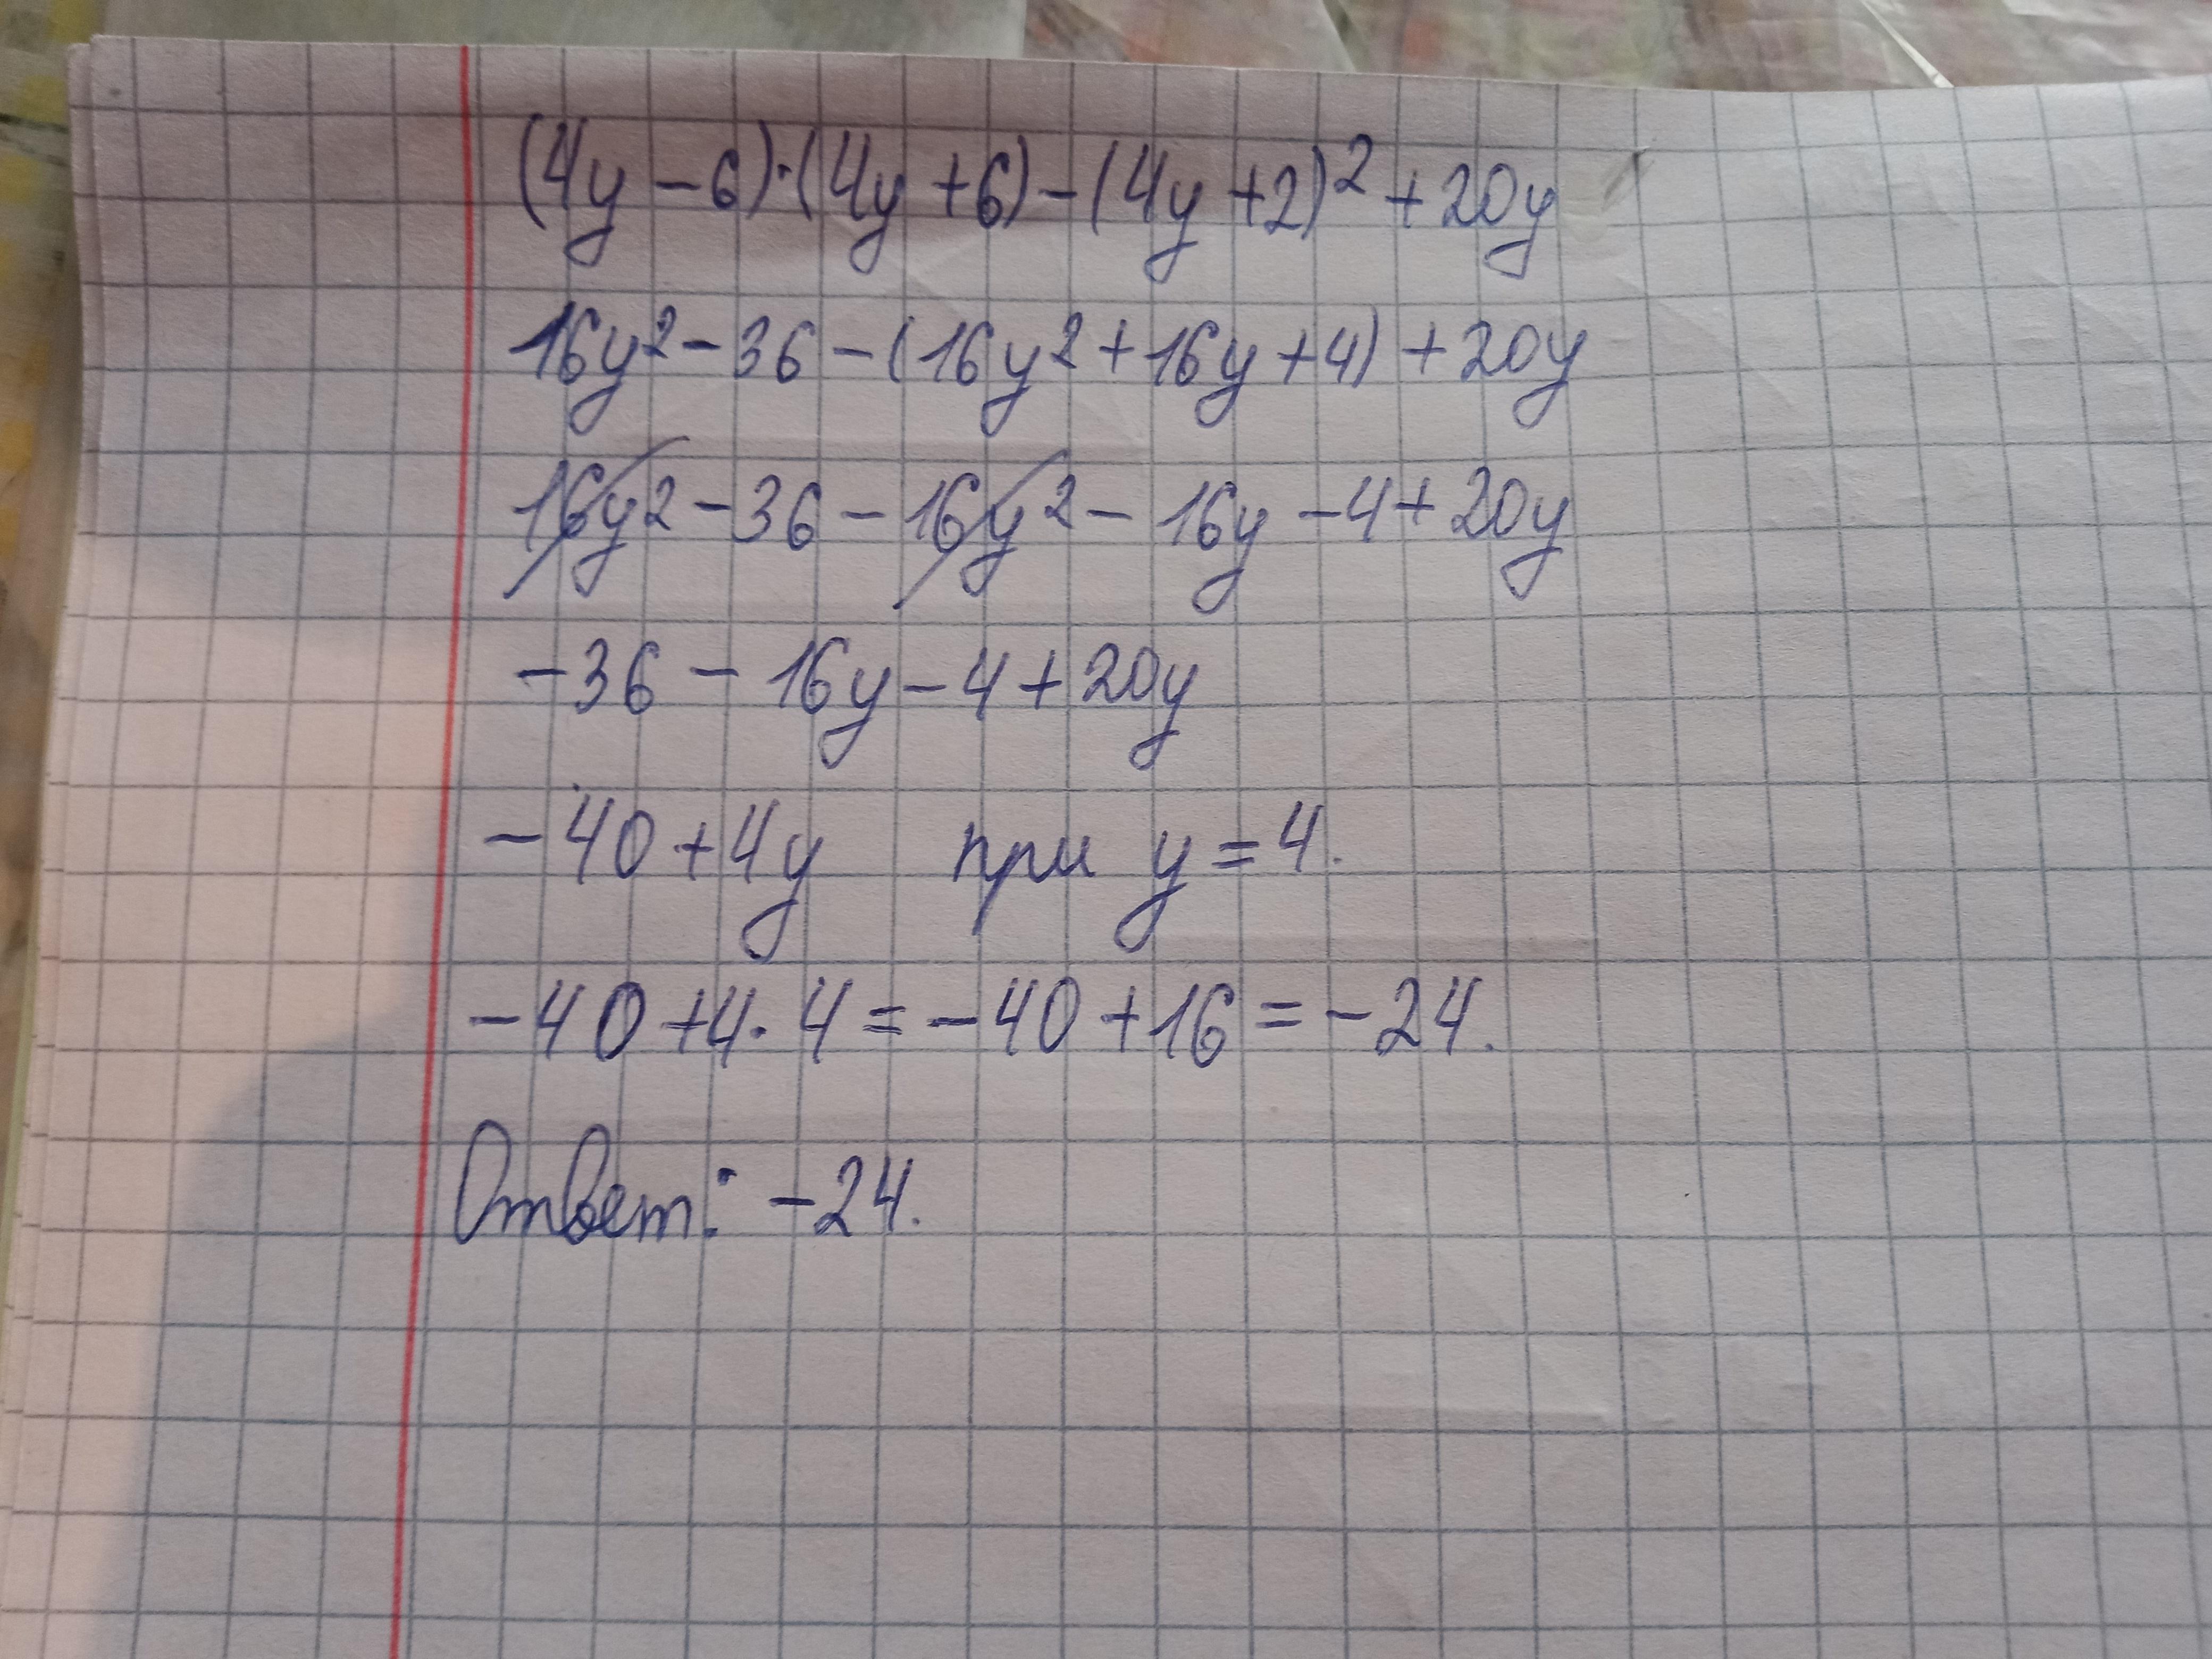 (4y - 6)·(4y + 6) - (4y + 2)² + 20y
16y² - 36 - (16y² + 16y + 4) + 20y
16y² - 36 - 16y² - 16y - 4 + 20y
- 36 - 16y - 4 + 20y
- 40 + 4y при y = 4.
- 40 + 4 · 4 = - 40 + 16 = - 24.
Ответ: - 24.